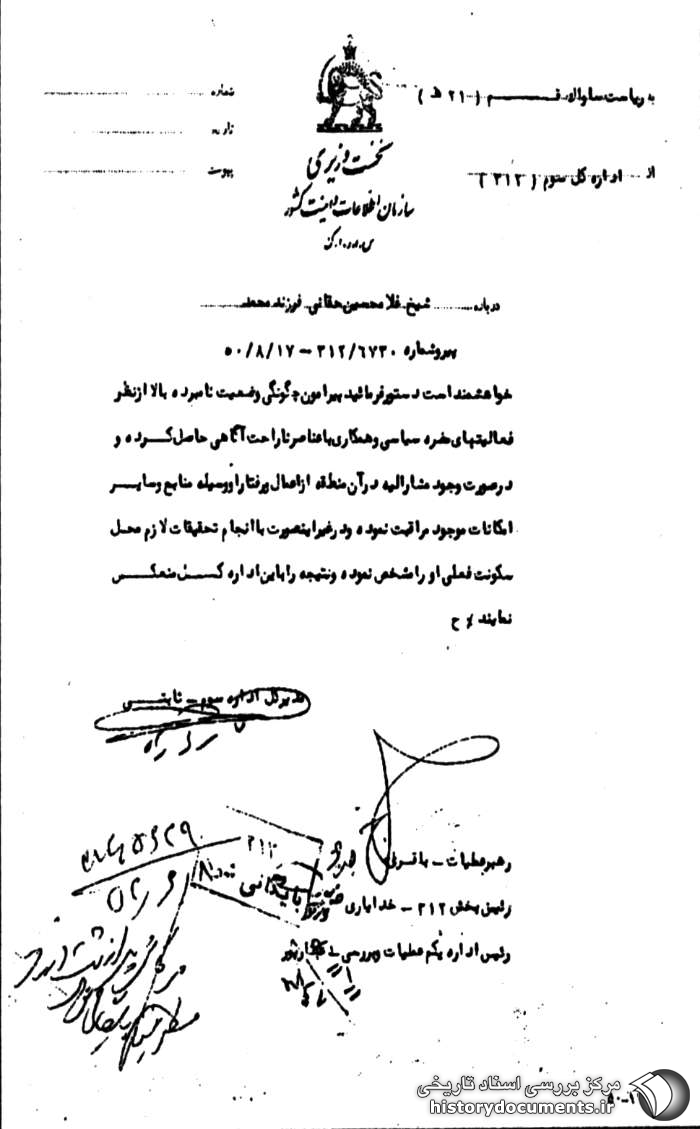 به ریاست ساواک قم (۲۱ هـ)
از اداره کل سوم (۳۱۲)
شماره
تاریخ
پیوست
نخست وزیری
سازمان اطلاعات و امنیت کشور
س.ا.و.ا.ک
درباره شیخ غلامحسین حقانی فرزند محمد
پیرو شماره ۳۱۲/۶۷۳۰ - ۵۰/۸/۱۷
خواهشمند است دستور فرمائید پیرامون چگونگی وضعیت نامبرده بالا از نظر
فعالیتهای مضره سیاسی و همکاری با عناصر ناراحت آگاهی حاصل کرده و
در صورت وجود مشارالیه در آن منطقه از اعمال و رفتار او وسیله منابع و سایر
امکانات موجود مراقبت نموده و در غیر اینصورت با انجام تحقیقات لازم محل
سکونت فعلی او را مشخص نموده و نتیجه را باین اداره کل منعکس
نمایند٪ ح
مدیر کل اداره سوم - ثابتی
رهبر عملیات - باقری
رئیس بخش ۳۱۲ - خدایاری
رئیس اداره یکم عملیات و بررسی
۳۱۲
بایگانی شود
مرکز بررسی اسناد تاریخی
historydocuments.ir